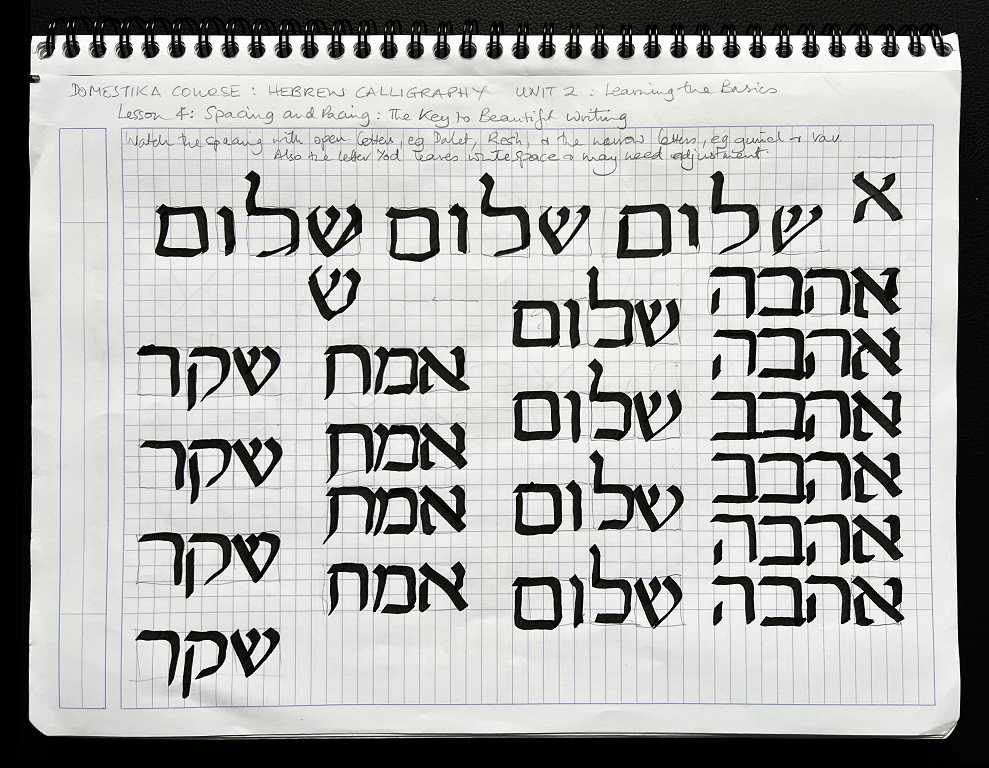 DOMESTIKA COURSE : HEBREW CALLIGRAPHY UNIT 2 : Learning the Basics
Lesson 4: Spacing and Pacing: The Key to Beautiful Writing
Watch the spacing with open letters, eg Dalet, Resh, & the narrow letters, eg gimel & Vav.
Also the letter Yod leaves white space & may need adjustment.
א
שלום שלום שלום
ש
אהבה
אהבה
אהבב
אהבב
אהבה
אהבה
שלום
שלום
שלום
שלום
אמת
אמת
אמת
אמת
שקר
שקר
שקר
שקר